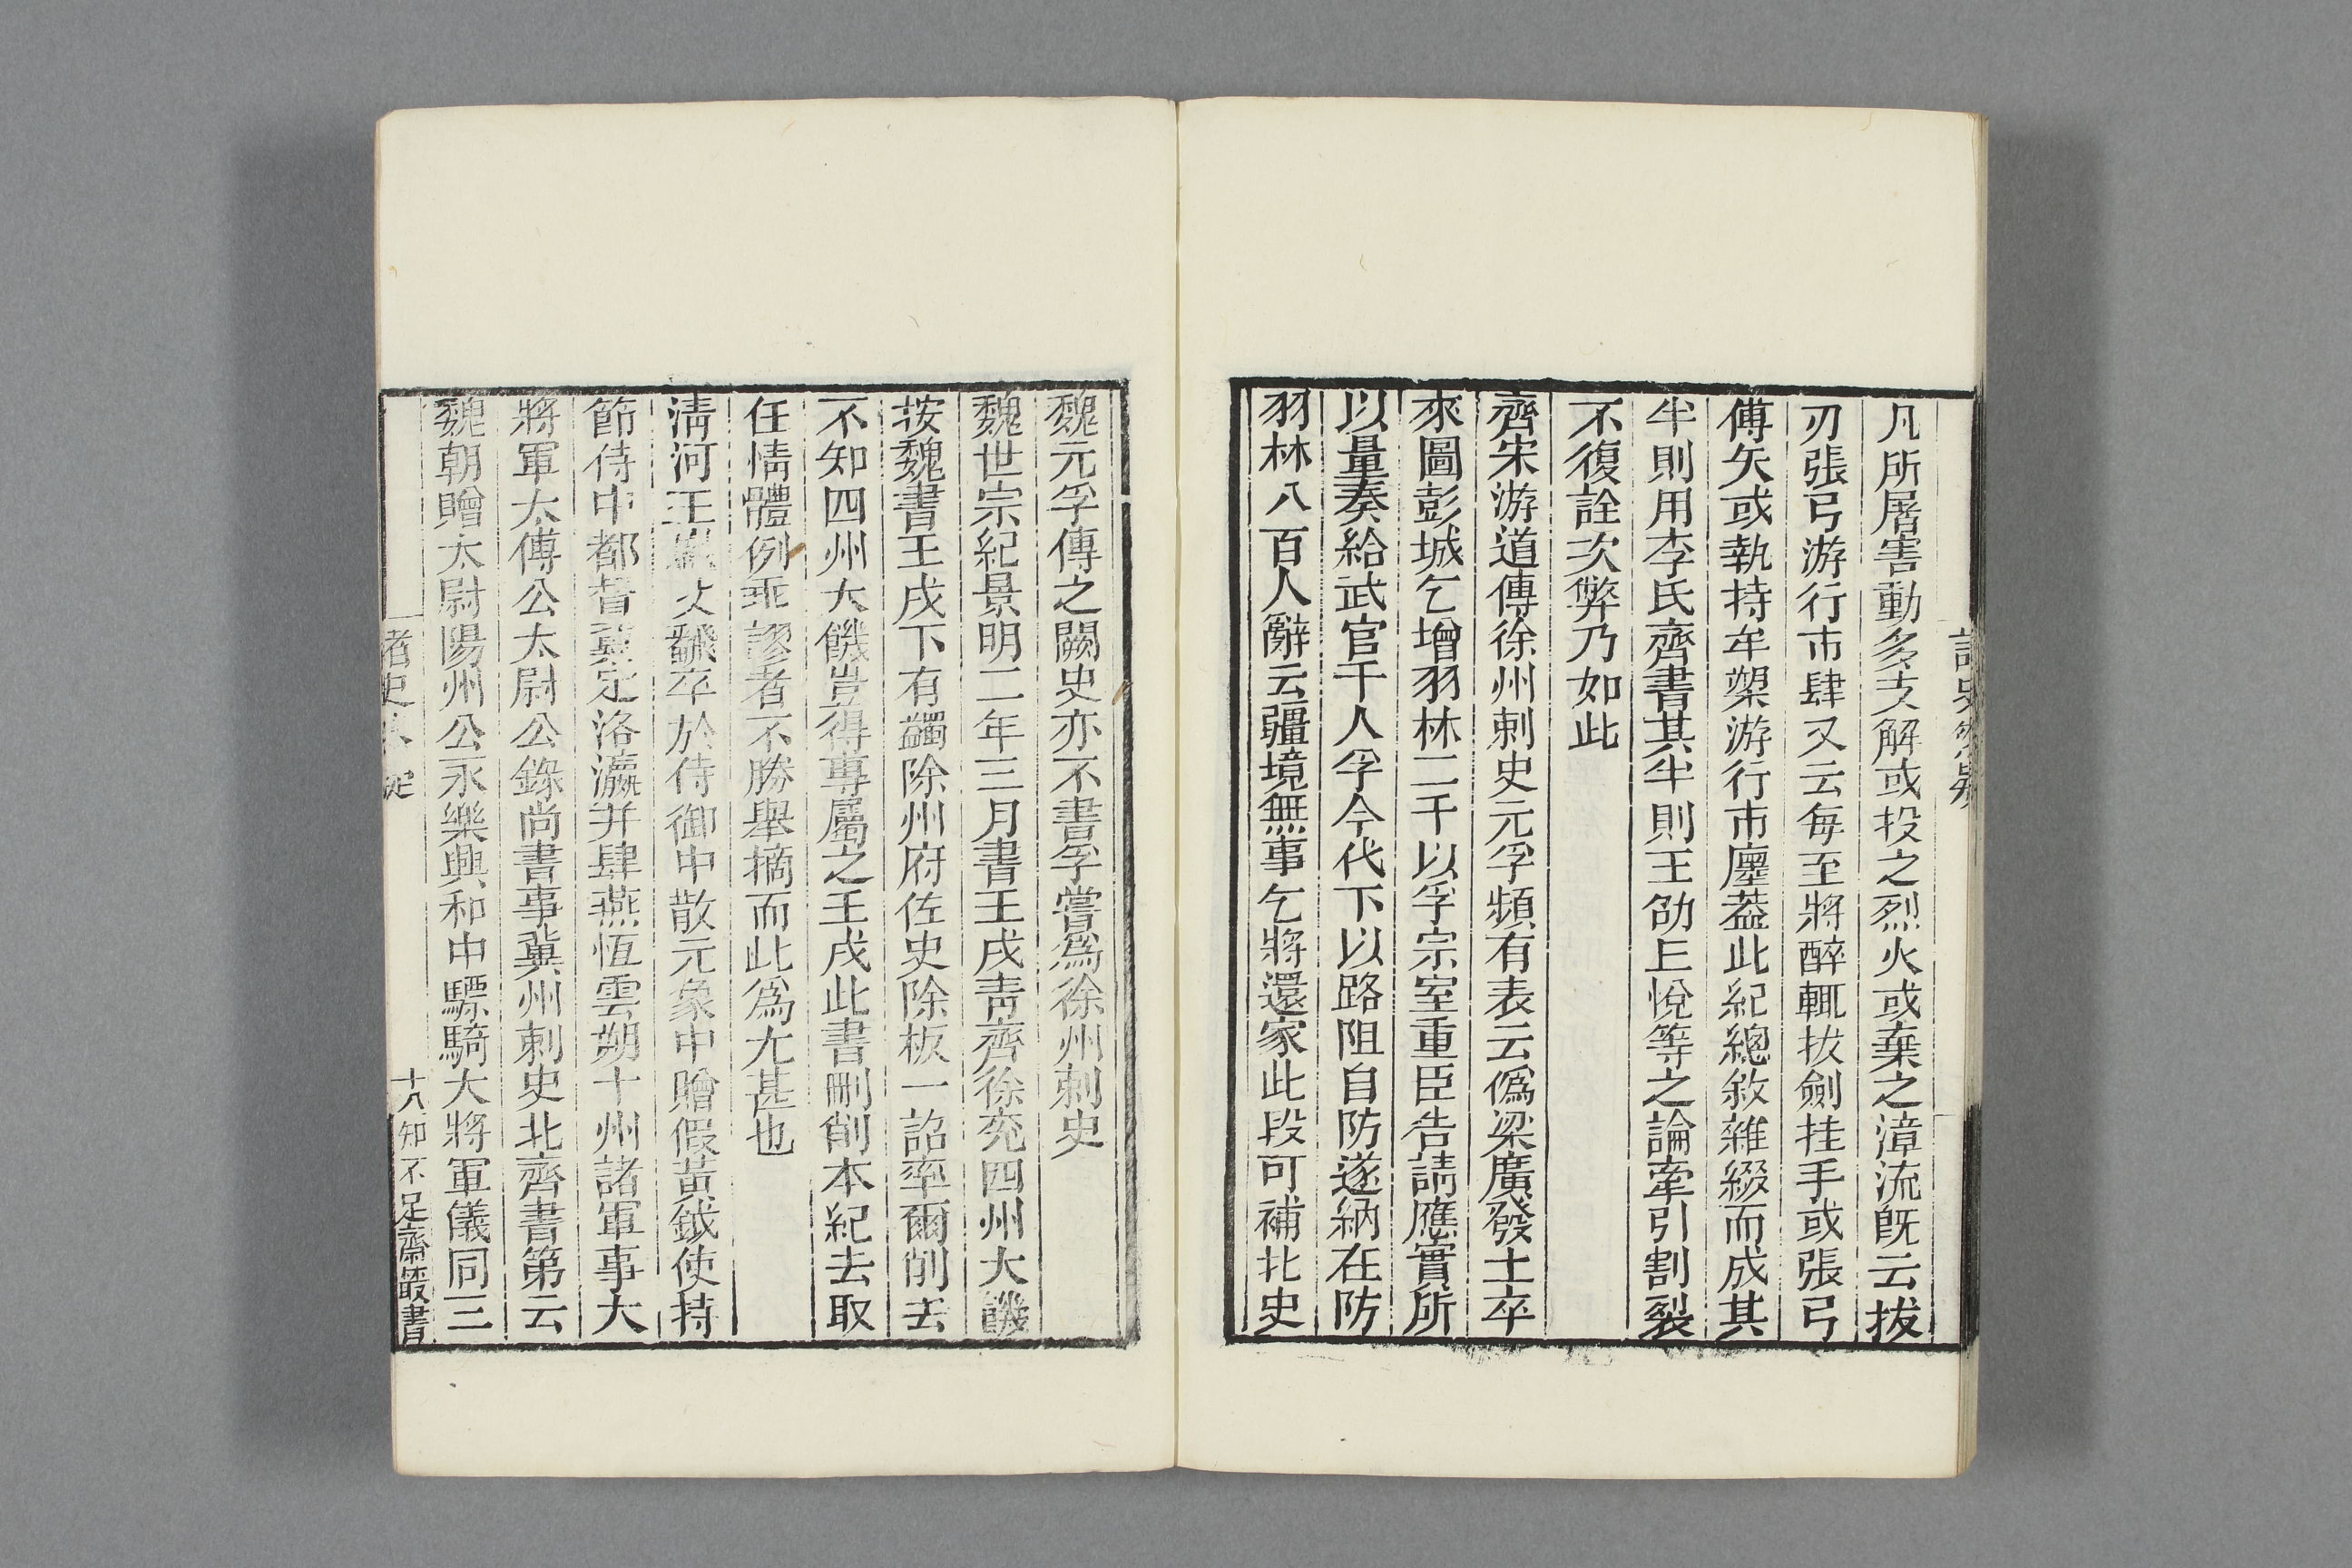 凡所屠害動多支解或投之烈火或棄之漳流旣云拔
刃張弓游行市肆又云每至將醉輒拔劍挂手或張弓
傅矢或執持牟槊游行市廛葢此紀總敘雜綴而成其
半則用李氏齊書其半則王劭㠯悅等之論牽引割裂
不復詮次弊乃如此
齊宋游道傳徐州刺史元孚頻有表云僞梁廣發士卒
來圖彭城乞增羽林二千以孚宗室重臣告請應實所
以量奏給武官千人孚今代下以路阻自防遂納在防
羽林八百人辭云疆境無事乞將還家此段可補北史
魏元孚傳之闕史亦不書孚嘗爲徐州刺史
魏世宗紀景明二年三月書壬戌青齊徐兗四州大饑
按魏書壬戌下有蠲除州府佐史除板一詔率爾削去
不知四州大饑豈得專屬之壬戌此書刪削本紀去取
任情體例乖謬者不勝舉摘而此爲尤甚也
清河王岳父飜卒於侍御中散元象中贈假黃鉞使持
節侍中都督冀定洛瀛并肆燕恆雲朔十州諸軍事大
將軍太傅公太尉公錄尚書事冀州刺史北齊書第云
魏朝贈太尉陽州公永樂興和中驃騎大將軍儀同三
諸史
十八知不足齋叢書